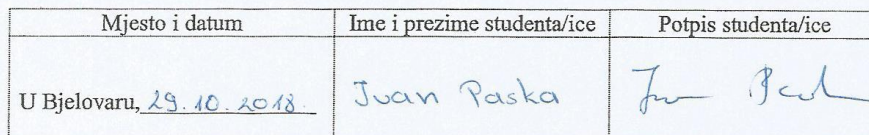 Mjesto i datum Ime i prezime studenta/ice Potpis studenta/ice
U Bjelovaru, 29.10.2018. Ivan Paska